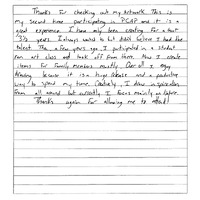 Thanks for checking out my artwork. This is
my second time participating in PCAP and it is a
great experience. I have only been creating for about
3½ years. I always wanted to but didn't believe I had the
talent. The a few years ago, I participated in a student
run art class and took off from there. Now I create
items for family members mostly. Over all I enjoy
Artwork because it is a huge release and a productive
way to spend my time. Creatively, I draw inspiration
from all around but currently I focus mainly on
Thanks again for allowing me to